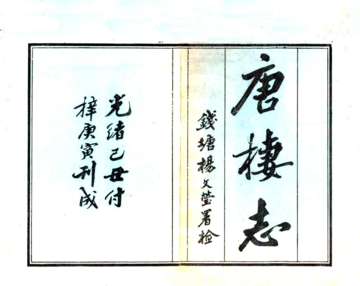 唐棲志
錢塘楊文瑩署檢
光緒己丑付
梓庚寅刊成